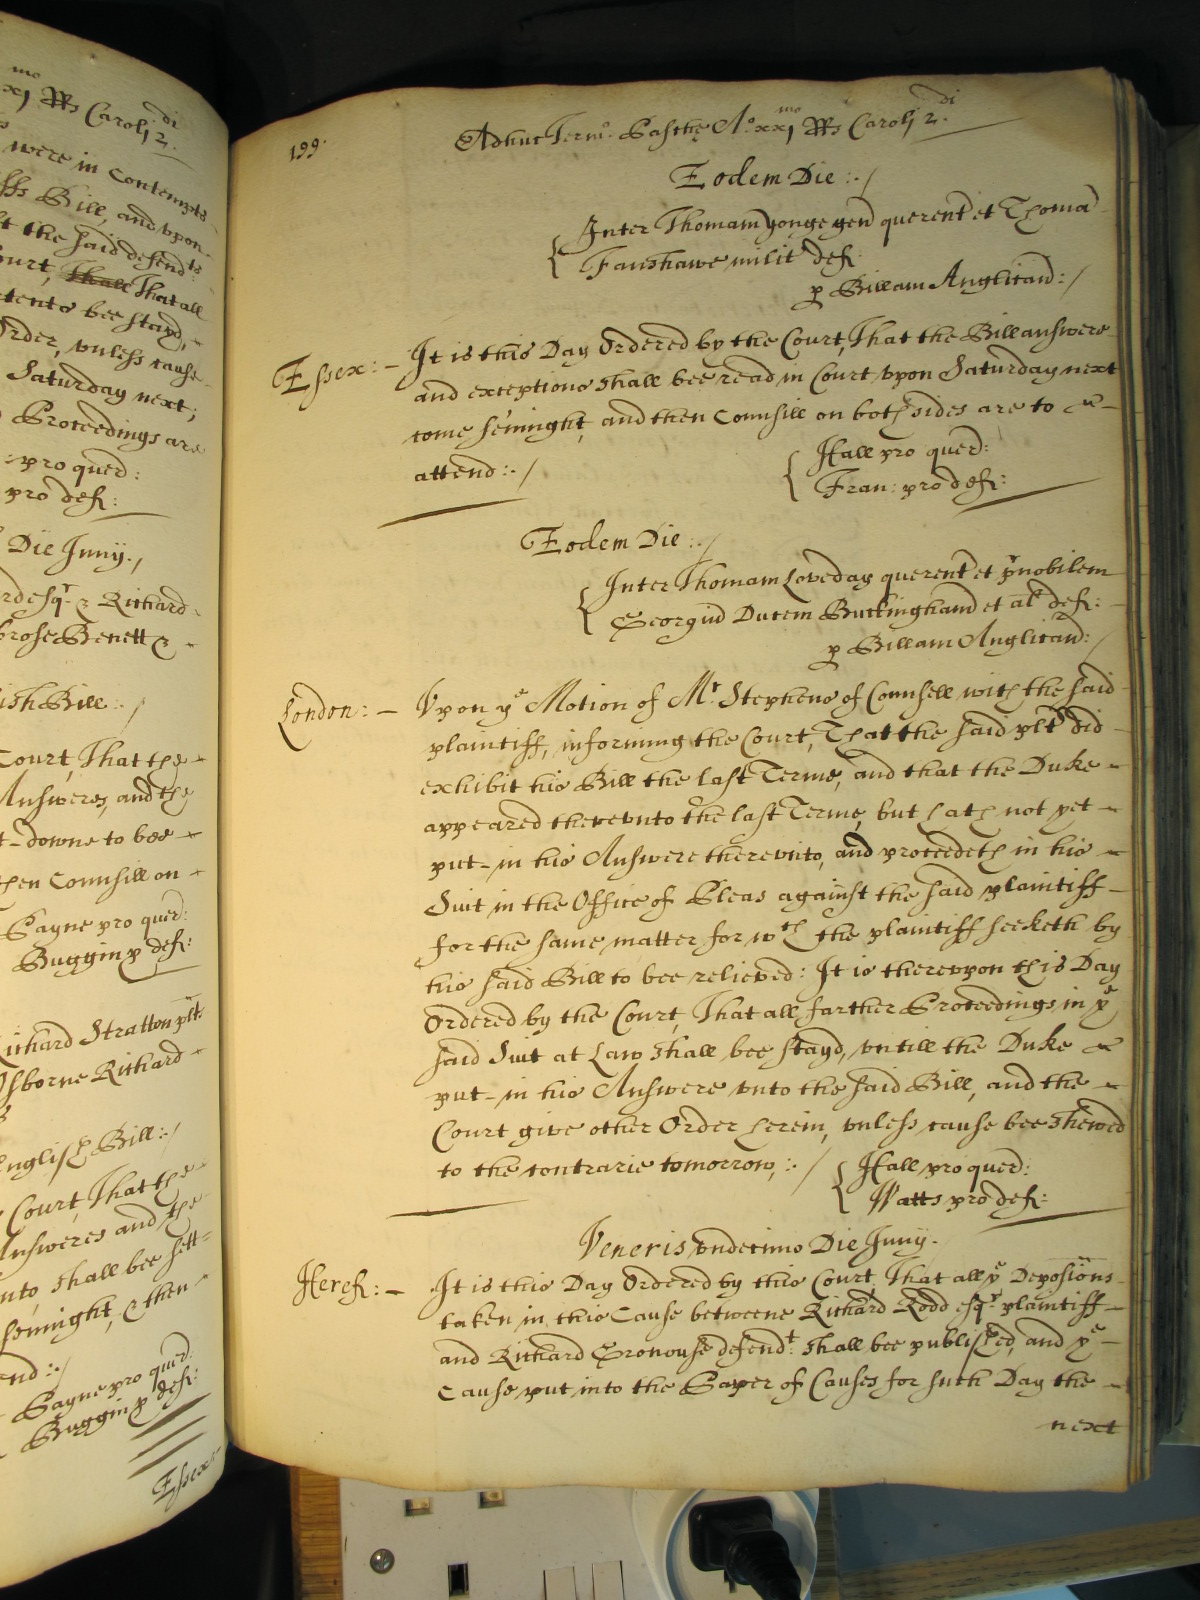 mo di
xxj RRs Caroli 2.
were in Contempts
Bill, and vpon
t the said defend.ts
Court, Shall That all
bee stayd,
Order, vnless cause
Saturday next;
Proceedings are
pro quer:
pro def:
Die Junij.
Esq.r & Richard
brose Benett &
ish Bill:
Court, That the
Answeres, and the
t-downe to bee
then Counsill on
Payne pro quer:
Buggin p def:
Richard Stratton plt.
Osborne Richard
English Bill:./
Court, That the
Answeres and the
nto shall bee sett=
sennight, & then
end:./
Payne pro quer:
Buggin p def:
Essex
199. Adhuc Term.o Pasche A.o xxj.mo RRs Caroli 2.di
Eodem Die:./
Inter Thomam Yonge gen querent et Thoma
Fanshawe milit def:
p Billam Anglican:/
Essex:- It is this Day Ordered by the Court, That the Bill answere
and exceptions shall bee read in Court vpon Saturday next
come sennight, and then Counsill on both sides are to
attend:./ Hall pro quer:
Fran: pro def:
Eodem Die:./
Inter Thomam Loveday querent et prnobilem
Georgiu Ducem Buckingham et al def:
p Billam Anglican:/
London:- Vpon ye Motion of Mr. Stephens of Counsell with the said
plaintiff, informing the Court, That the said plt did
exhibit his Bill the last Terme, and that the Duke
appeared therevnto the last Terme, but hath not yet
put-in his Answere therevnto, and proceedeth in his
Suit in the Office of Pleas against the said plaintiff
for the same matter for wch the plaintiff seeketh by
his said Bill to bee relieved: It is therevpon this Day
Ordered by the Court, That all farther Proceedings in ye
said Suit at Law shall bee stayd, vntill the Duke
put-in his Answere vnto the said Bill, and the
Court give other Order herein, vnless cause bee shewed
to the contrarie tomorrow,:./ Hall pro quer:
Watts pro def:
Veneris vndecimo Die Junij.
Heref:- It is this Day Ordered by this Court, That all ye Deposicons
taken in this Cause betweene Richard Rodd esq.r plaintiff
and Richard Gronouse defend.t shall bee published, and ye
Cause put into the Paper of Causes for such Day the
next